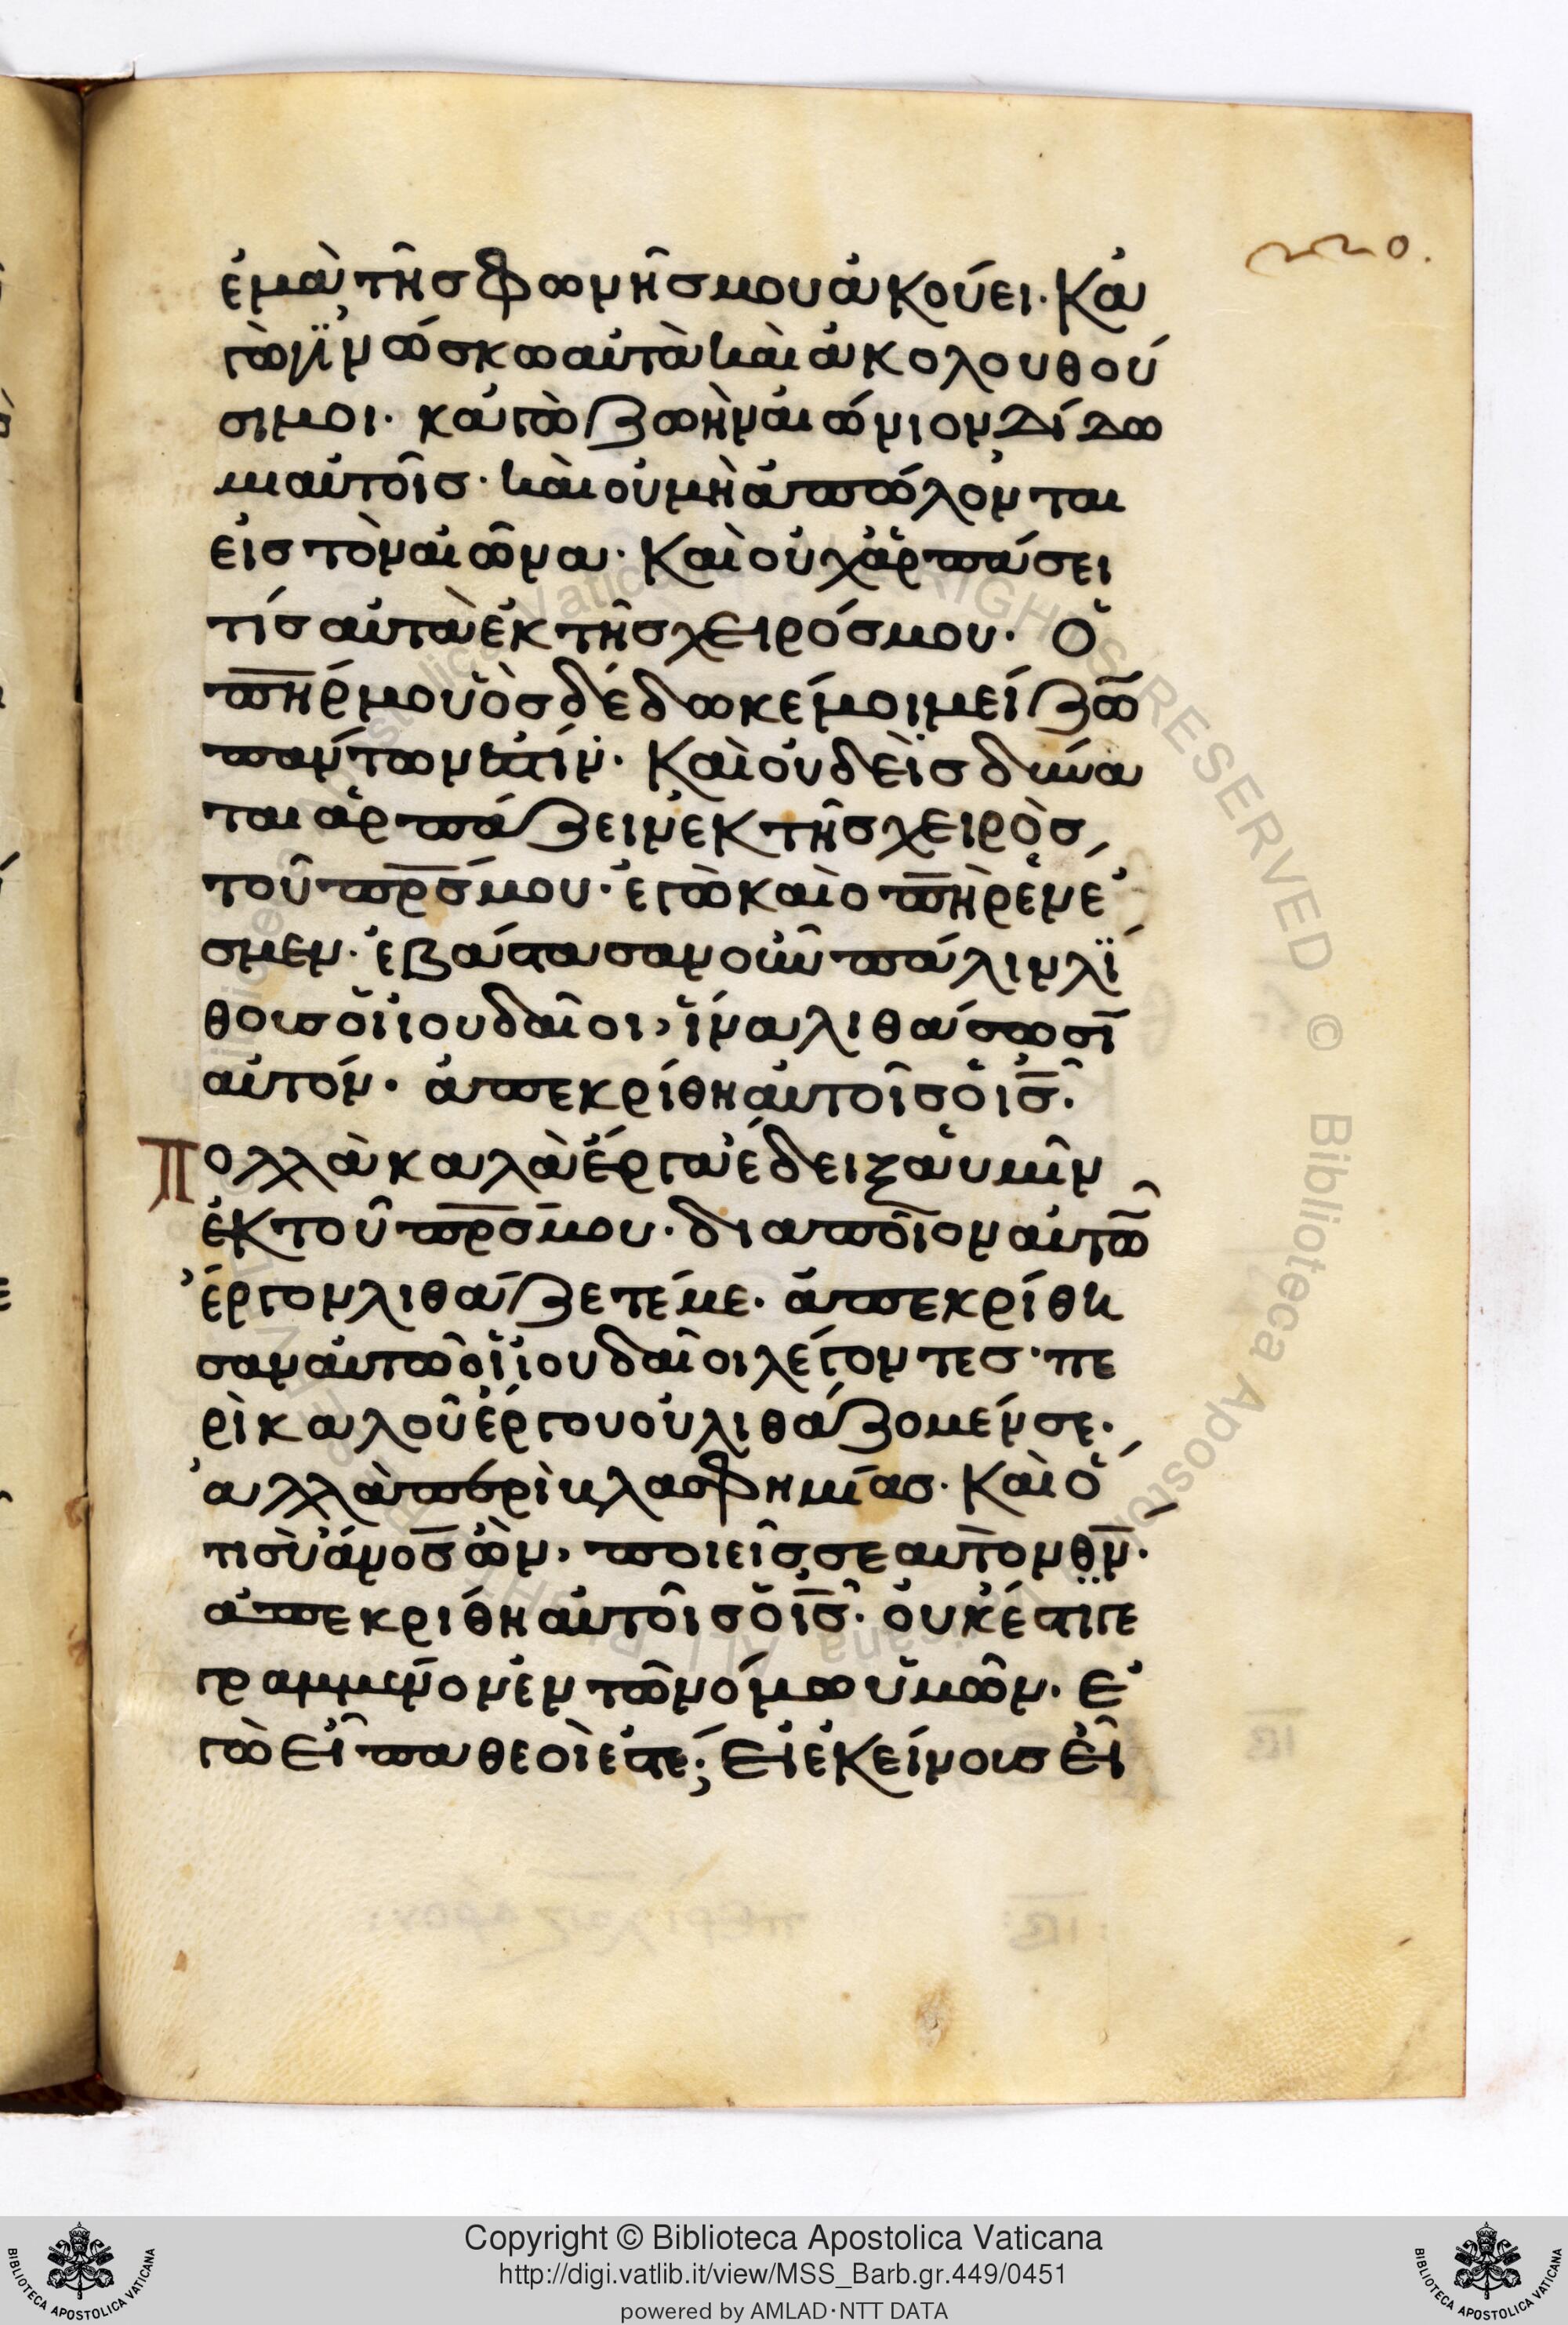 220.
ἐμὰ τῆς φωνῆς μου ἀκούει· κἀ
γὼ γϊνώσκω αὐτὰ καὶ ἀκολουθού
σι μοι· κἀγὼ ζωὴν αἰώνιον δίδω
μι αὐτοῖς· καὶ οὐ μὴ ἀπόλωνται
εἰς τὸν αἰῶνα· Καὶ οὐχ ἁρπάσει
τίς αὐτὰ ἐκ τῆς χειρός μου· Ὁ
π̅η̅ρ μου ὃς δέδωκέ μοι μείζω̅
πάντων ἐστίν· Καὶ οὐδεὶς δύνα
ται ἁρπάζειν ἐκ τῆς χειρὸς
τοῦ π̅ρ̅σ̅ μου· ἐγὼ καὶ ὁ π̅η̅ρ ἕν ἐ
σμεν· ἐβάστασαν οὖν πάλιν λϊ
θους οἱ ἰουδαῖοι, ἵνα λιθάσωσϊ
αὐτόν· ἀπεκρίθη αὐτοῖς ὁ ι̅ς̅·
Πολλὰ καλὰ ἔργα ἔδειξα ὑμῖν
ἐκ τοῦ π̅ρ̅σ̅ μου· δια ποῖον αὐτῶ̅
ἔργον λιθάζετέ με· ἀπεκρίθη
σαν αὐτῶ οἱ ἰουδαῖοι λέγοντες· πε
ρὶ καλοῦ ἔργου οὐ λιθάζομέν σε·
ἀλλὰ περὶ βλασφημίας· Καὶ ὅ
τι σὺ ἄν̅ο̅ς̅ ὢν, ποιεῖς σεαυτὸν θ̅ν̅·
ἀπεκρίθη αὐτοῖς ὁ ι̅ς̅· οὐκ ἔστϊ γε
γραμμένον ἐν τῶ νόμω ὑμῶν· ἐ
γὼ εἶπα θεοὶ ἐστέ; Εἰ ἐκείνους εἶ
Copyright © Biblioteca Apostolica Vaticana
http://digi.vatlib.it/view/MSS_Barb.gr.449/0451
powered by AMLAD·NTT DATA
BIBLIOTECA APOSTOLICA VATICANA
BIBLIOTECA APOSTOLICA VATICANA